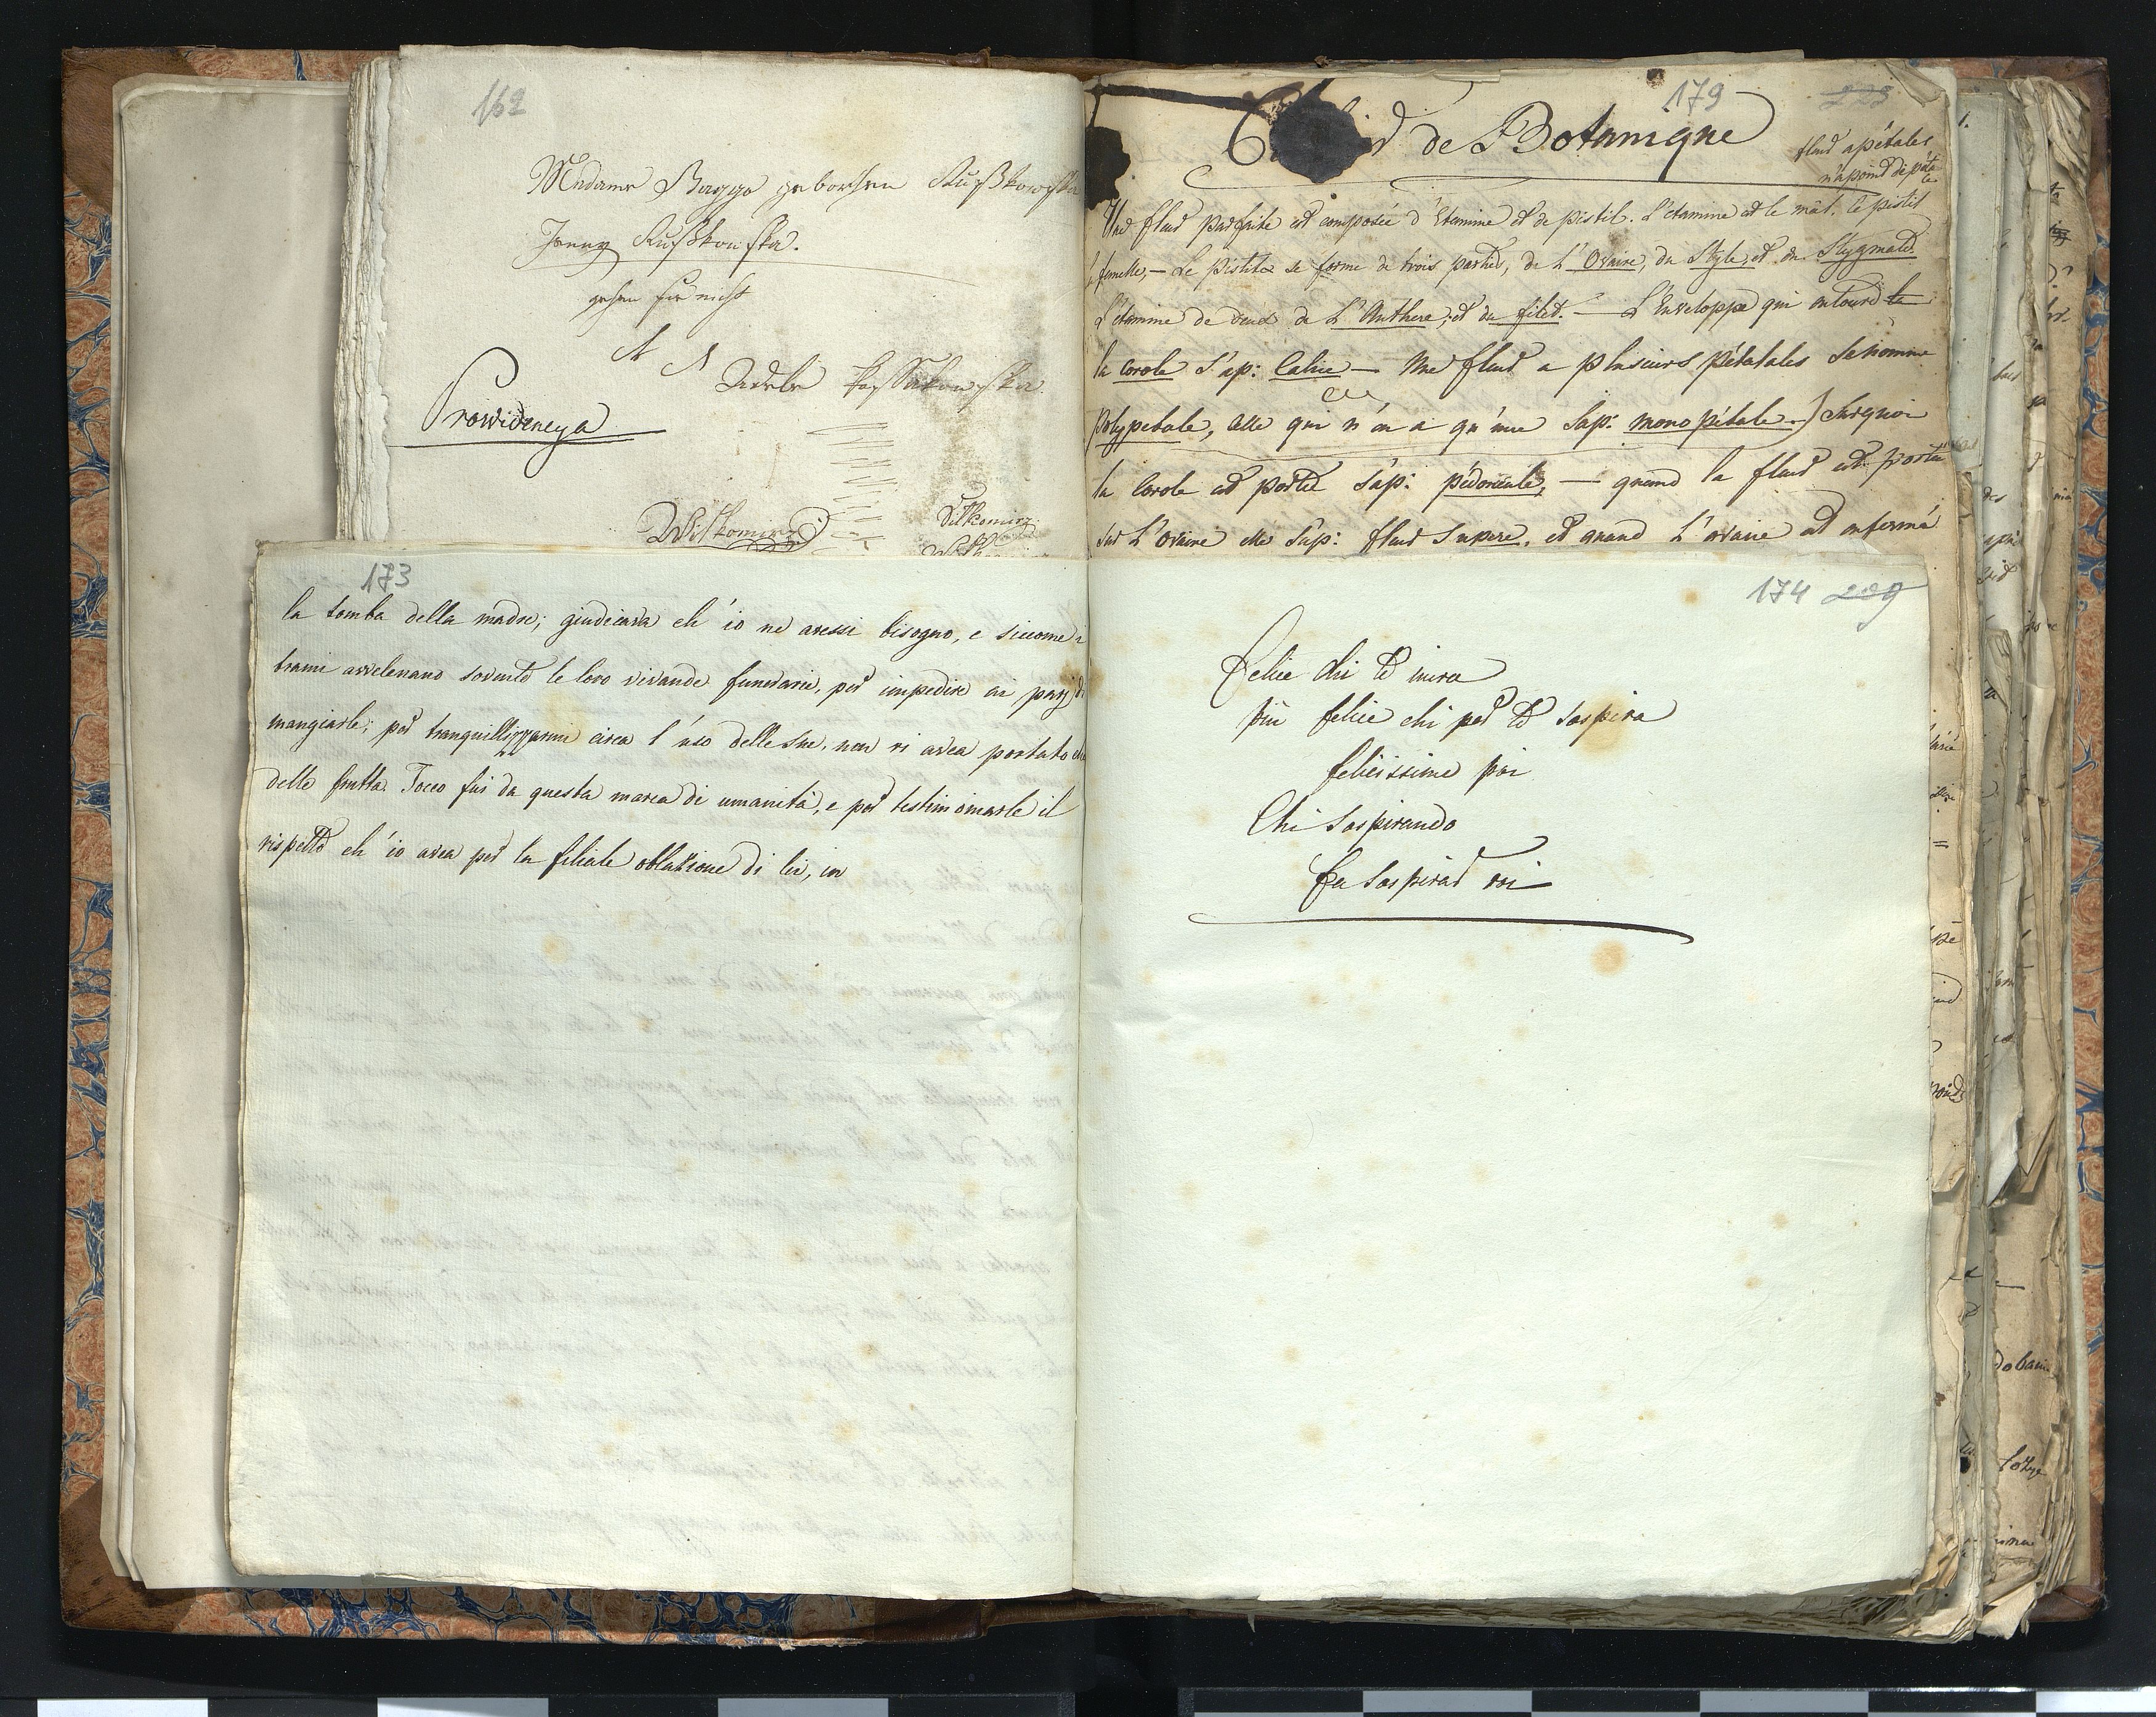 162
Madame Baggo gebohren Kußkowska
Jenny Kußkowska.
gehen sie nicht
A A Adele Kossakowska
Prowidencya
Wilkomirz Wilkomirz
179
de Botanique
fleur apétales
n'a point de pétales
Une fleur parfaite est composée d'Etamine et de pistil. L'étamine est le mâl. le pistil
femelle, — Le Pistile se forme de trois parties, de L'Ovaire, du Style, et du Stygmate
L'étamine de deux de L'Anthere, et du filet. — L'Enveloppe qui entoure le
la corole s'ap: Calice — Une fleur a plusieurs pétatales se nomme
Polypetale, celle qui n'en a qu'une s'ap: monopétale.) Sur quoi
la Corole est portée s'ap: pédoncule, — quand la fleur est portée
sur L'ovaire elle s'ap: fleur supere, et quand L'ovaire est enfermé
173
la tomba della madre; giudicava ch'io ne avessi bisogno, e siccome i
brami avvelenano sovente le loro vivande funerarie, per impedire ai parj di
mangiarle; per tranquillizzarmi circa l'uso delle sue, non vi avea portato che
delle frutta. Tocco fui da questa marca di umanità, e per testimoniarle il
rispetto ch'io avea per la filiale oblazione di lei, in
174 209
Felice chi te mira
più felice chi per te sospira
felicissimo poi
Chi sospirando
Fa sospirar voi